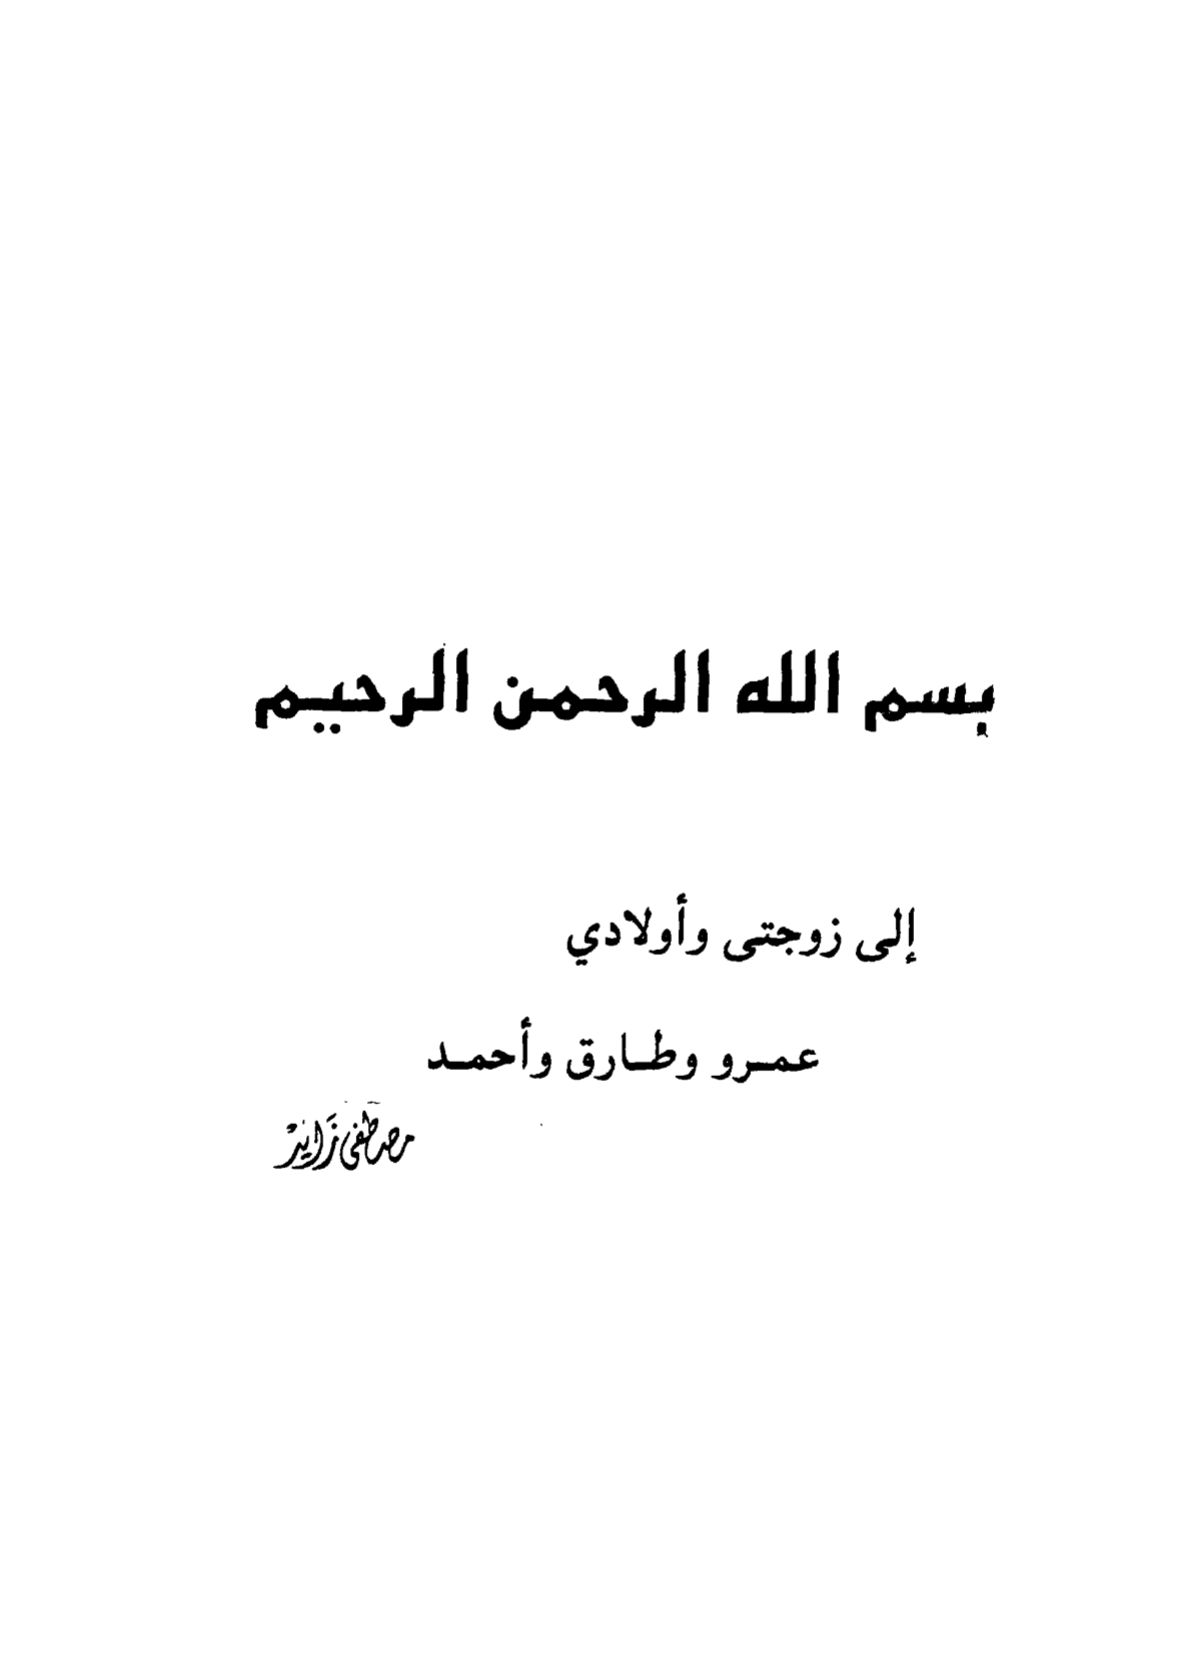 بسم الله الرحمن الرحيم
إلى زوجتى وأولادي
عمرو وطارق وأحمد
مصطفى زايد